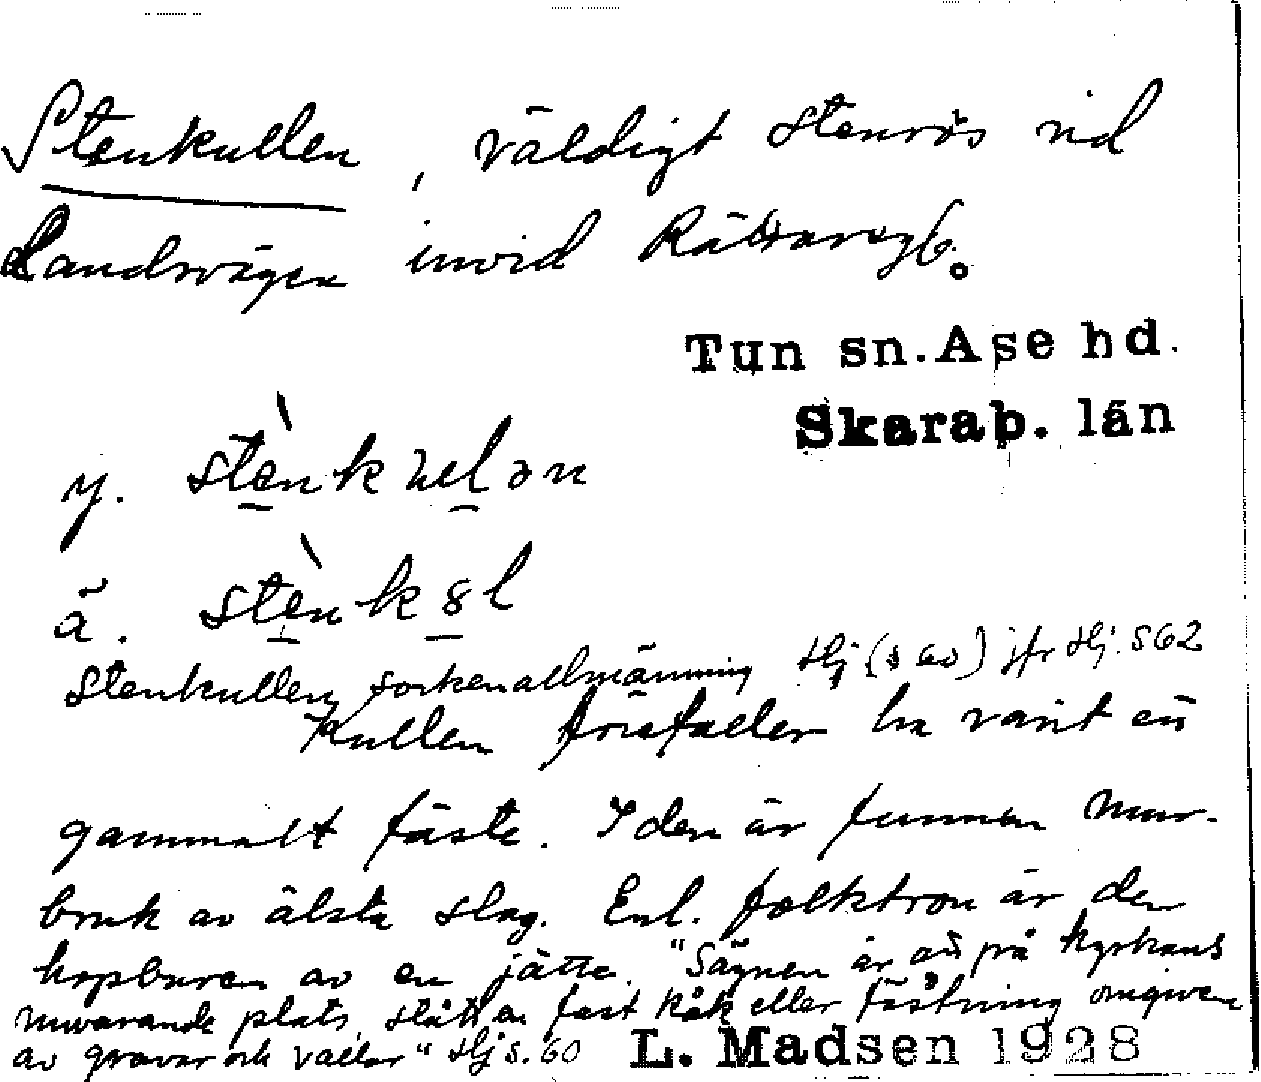 Stenkullen, väldigt stenrös vid
Landsvägen invid
Tun sn. Åse hd.
Skarab. län
y.
ä.
Stenkullen, sockenallmänning Hlj (s 60) jfr Hlj. S 62
Kullen förefaller ha varit ett
gammalt fäste. I den är funnen mur-
bruk av älsta slag. Enl. folktron är den
hopburen av en jätte. "Sägnen är att på kyrkans
nuvarande plats, stått en fast kåk eller fästning omgiven
av gravar och vallar" Hlj s. 60
L. Madsen 1928